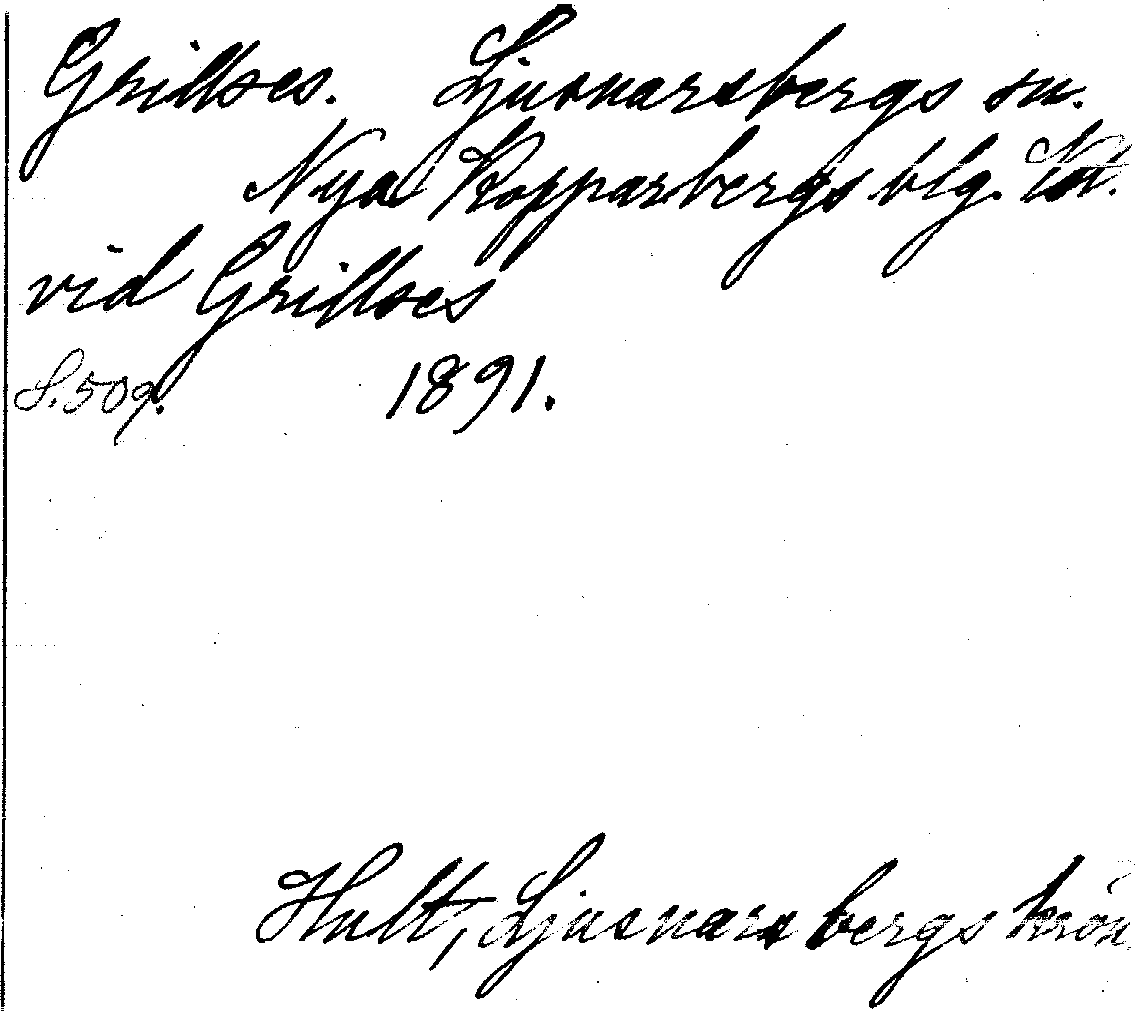 Grillses. Ljusnarsbergs sn.
Nya Kopparbergs blg.
vid Grillses
S. 509. 1891.
Hult, Ljusnarsbergs krön